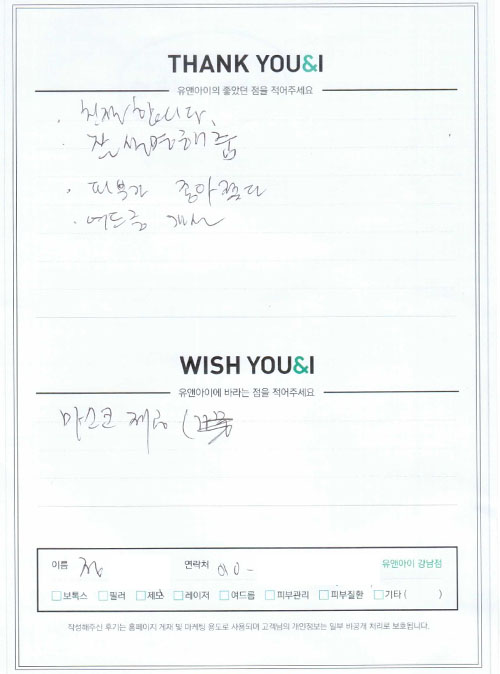 THANK YOU&I
유앤아이의 좋았던 점을 적어주세요
· 친절합니다.
· 잘 설명해줌
· 피부가 좋아졌다
· 여드름 개선
WISH YOU&I
유앤아이에 바라는 점을 적어주세요
마스크 제공 (
이름 연락처 010- 유앤아이 강남점
보톡스 필러 제모 레이저 여드름 피부관리 피부질환 기타 ( )
작성해주신 후기는 홈페이지 게재 및 마케팅 용도로 사용되며 고객님의 개인정보는 일부 비공개 처리로 보호됩니다.